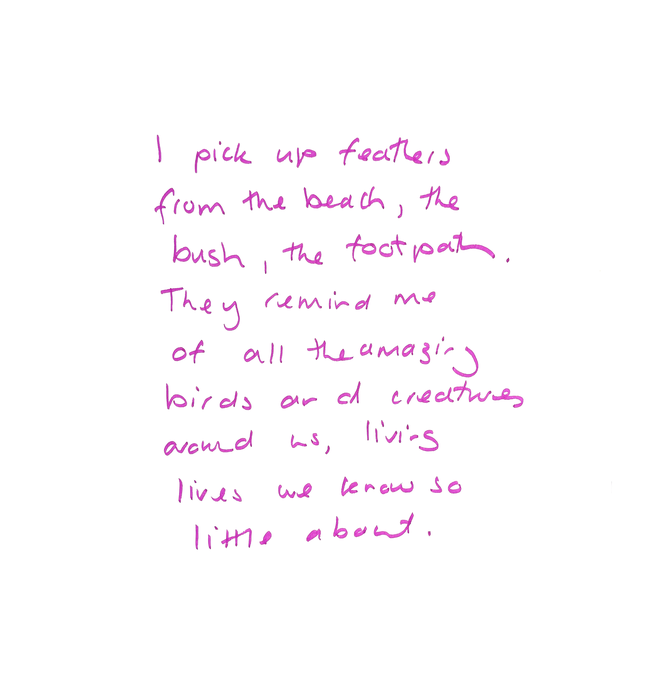 I pick up feathers
from the beach, the
bush, the footpath.
They remind me
of all the amazing
birds and creatures
around us, living
lives we know so
little about.